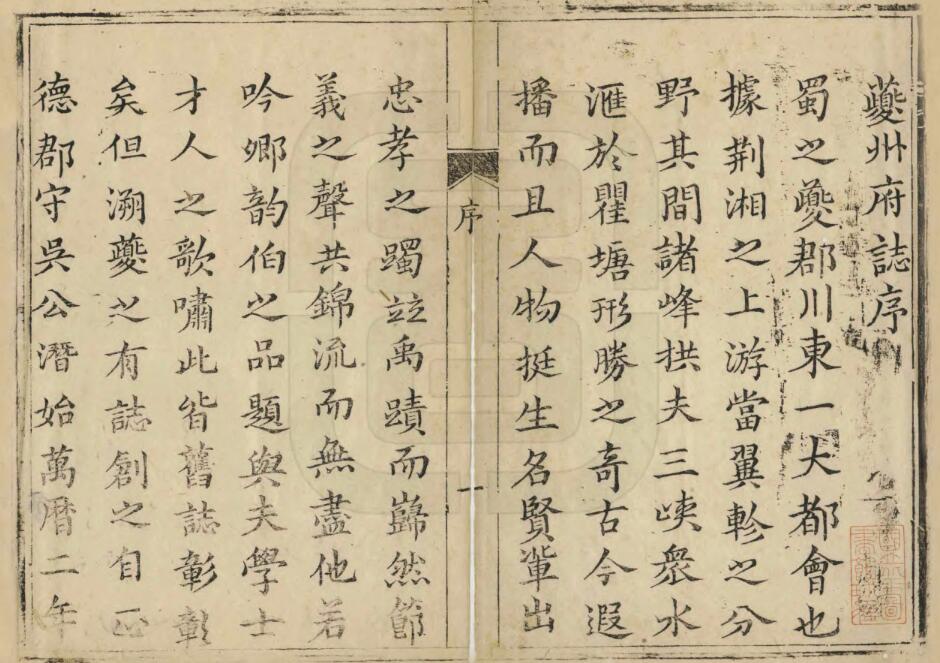 夔州府誌序
蜀之夔郡川東一大都會也
據荆湘之上游當翼軫之分
野其間諸峰拱夫三峽衆水
滙於瞿塘形勝之竒古今遐
播而且人物挺生名賢輩出
序
一
忠孝之躅竝禹蹟而巋然節
義之聲共錦流而無盡他若
吟鄉韵伯之品題與夫學士
才人之歌嘯此皆舊誌彰彰
矣但溯夔之有誌創之自正
德郡守吳公潛始萬曆二年